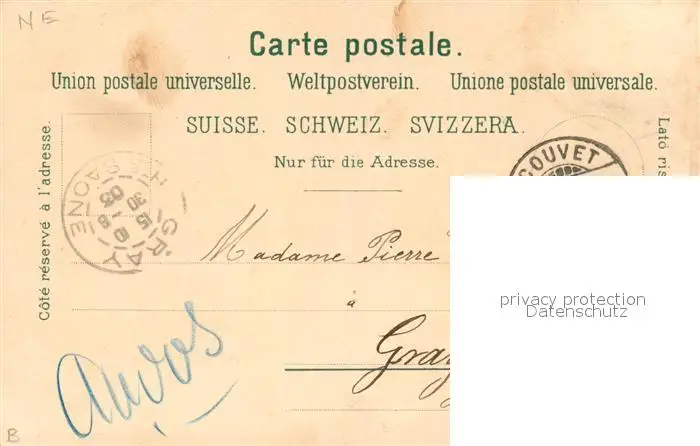 NE
Carte postale.
Union postale universelle. Weltpostverein. Unione postale universale.
SUISSE. SCHWEIZ. SVIZZERA.
Nur für die Adresse.
Côté réservé à l'adresse.
Lato ris
COUVET
GRAY
Hte SAONE
15 10
30 -8
03
Madame Pierre
à
Gray
privacy protection
Datenschutz
B